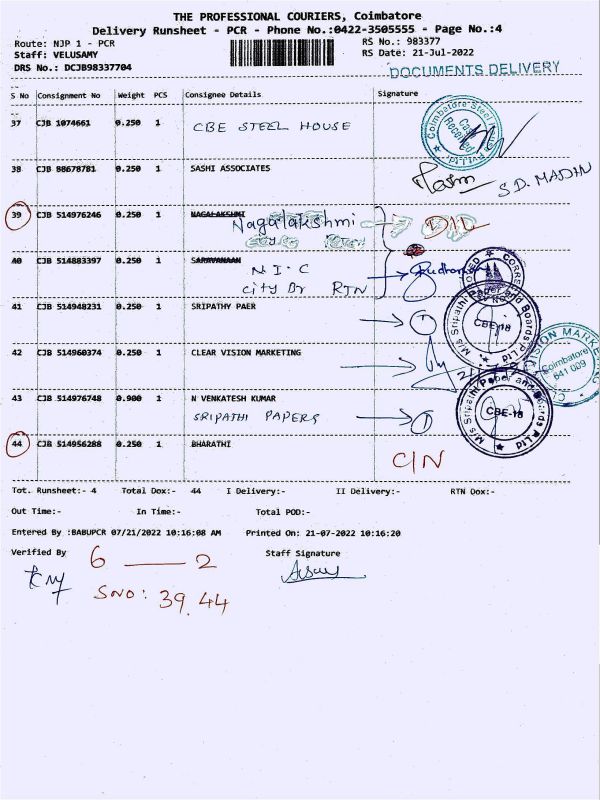 THE PROFESSIONAL COURIERS, Coimbatore
Delivery Runsheet - PCR - Phone No.:0422-3505555 - Page No.:4
Route: NJP 1 - PCR RS No.: 983377
Staff: VELUSAMY RS Date: 21-Jul-2022
DRS No.: DCJB98337704
DOCUMENTS DELIVERY
S No Consignment No Weight PCS Consignee Details Signature
37 CJB 1074661 0.250 1 CBE STEEL HOUSE
38 CJB 88678781 0.250 1 SASHI ASSOCIATES
S.D. MADAN
39 CJB 514976246 0.250 1 NAGALAKSHMI
Nagalakshmi D/L
40 CJB 514883397 0.250 1 SARAVANAAN
N.I.C
City Br RTN
41 CJB 514948231 0.250 1 SRIPATHY PAER
42 CJB 514960374 0.250 1 CLEAR VISION MARKETING
43 CJB 514976748 0.900 1 N VENKATESH KUMAR
SRIPATHI PAPERS
44 CJB 514956288 0.250 1 BHARATHI
C/N
Coimbatore Steel
Cash
Received
M/s Sripathi Paper and Boards P Ltd
CBE-18
VISION MARKE
Coimbatore
641 009
M/s Sripathi Paper and Boards P Ltd
CBE-18
Tot. Runsheet:- 4 Total Dox:- 44 I Delivery:- II Delivery:- RTN Dox:-
Out Time:- In Time:- Total POD:-
Entered By :BABUPCR 07/21/2022 10:16:08 AM Printed On: 21-07-2022 10:16:20
Verified By Staff Signature
6 — 2
SNO: 39.44